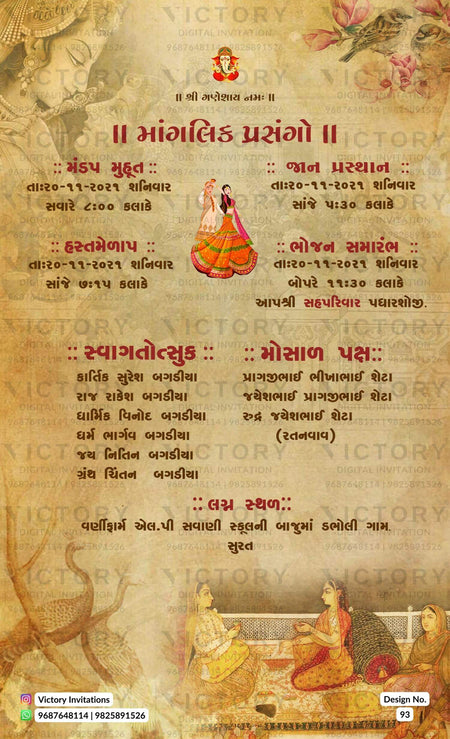 ॥ શ્રી ગણેશાય નમઃ ॥
॥ માંગલિક પ્રસંગો ॥
:: મંડપ મુહૂત ::
તાઃ૨૦-૧૧-૨૦૨૧ શનિવાર
સવારે ૮:૦૦ કલાકે
:: જાન પ્રસ્થાન ::
તાઃ૨૦-૧૧-૨૦૨૧ શનિવાર
સાંજે ૫:૩૦ કલાકે
:: હસ્તમેળાપ ::
તાઃ૨૦-૧૧-૨૦૨૧ શનિવાર
સાંજે ૭:૧૫ કલાકે
:: ભોજન સમારંભ ::
તાઃ૨૦-૧૧-૨૦૨૧ શનિવાર
બોપરે ૧૧:૩૦ કલાકે
આપશ્રી સહપરિવાર પધારશોજી.
:: સ્વાગતોત્સુક ::
કાર્તિક સુરેશ બગડીયા
રાજ રાકેશ બગડીયા
ધાર્મિક વિનોદ બગડીયા
ધર્મ ભાર્ગવ બગડીયા
જય નિતિન બગડીયા
ગ્રંથ ચિંતન બગડીયા
:: મોસાળ પક્ષ::
પ્રાગજીભાઈ ભીખાભાઈ શેટા
જયેશભાઈ પ્રાગજીભાઈ શેટા
રુદ્ર જયેશભાઈ શેટા
(રતનવાવ)
:: લગ્ન સ્થળ::
વર્ણીફાર્મ એલ.પી સવાણી સ્કૂલની બાજુમાં ડભોલી ગામ.
સુરત
Victory Invitations
9687648114 | 9825891526
Design No.
93
VICTORY
DIGITAL INVITATION
9687648114 | 9825891526